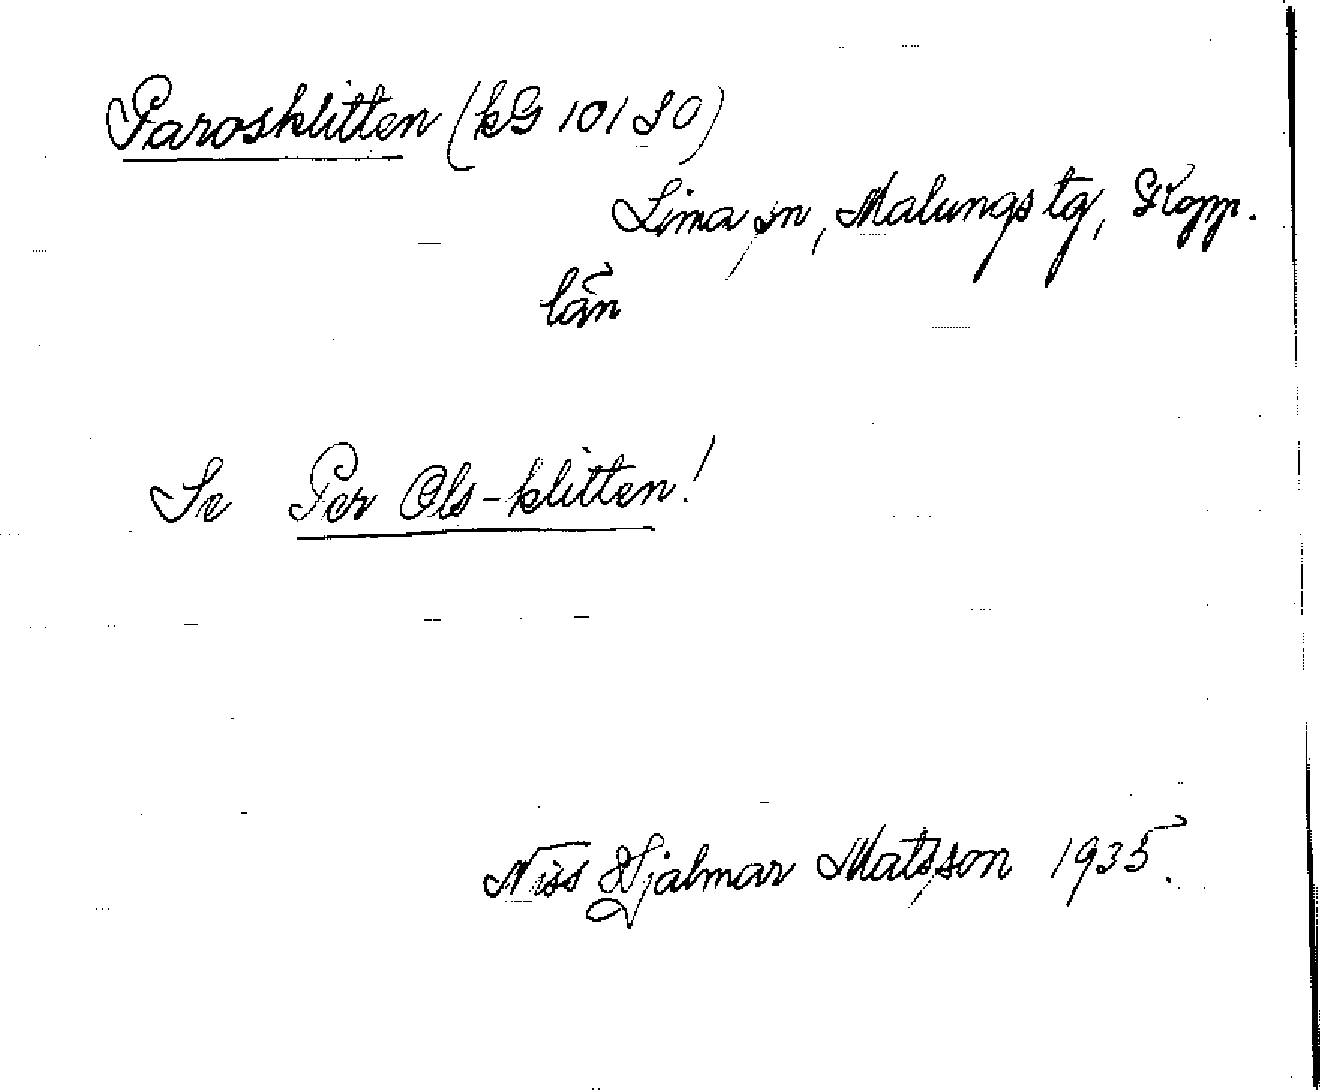 Parosklitten (kG 10130)
Lima sn, Malungs tg, Kopp.
län
Se Per Ols-klitten!
Niss Hjalmar Matsson 1935.